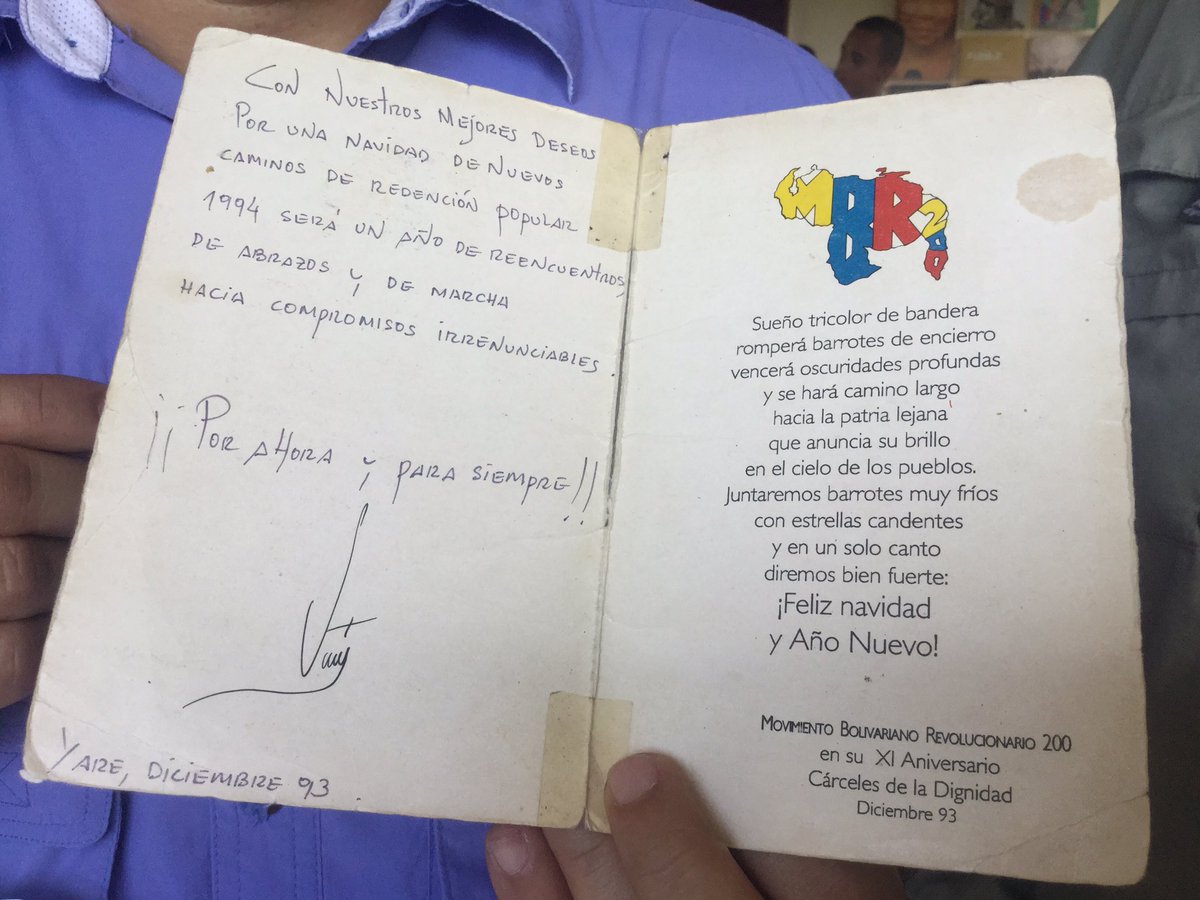 CON NUESTROS MEJORES DESEOS
POR UNA NAVIDAD DE NUEVOS
CAMINOS DE REDENCIÓN POPULAR
1994 SERÁ UN AÑO DE REENCUENTROS,
DE ABRAZOS Y DE MARCHA
HACIA COMPROMISOS IRRENUNCIABLES
¡¡POR AHORA Y PARA SIEMPRE!!
YARE, DICIEMBRE 93
MBR 200
Sueño tricolor de bandera
romperá barrotes de encierro
vencerá oscuridades profundas
y se hará camino largo
hacia la patria lejana
que anuncia su brillo
en el cielo de los pueblos.
Juntaremos barrotes muy fríos
con estrellas candentes
y en un solo canto
diremos bien fuerte:
¡Feliz navidad
y Año Nuevo!
MOVIMIENTO BOLIVARIANO REVOLUCIONARIO 200
en su XI Aniversario
Cárceles de la Dignidad
Diciembre 93